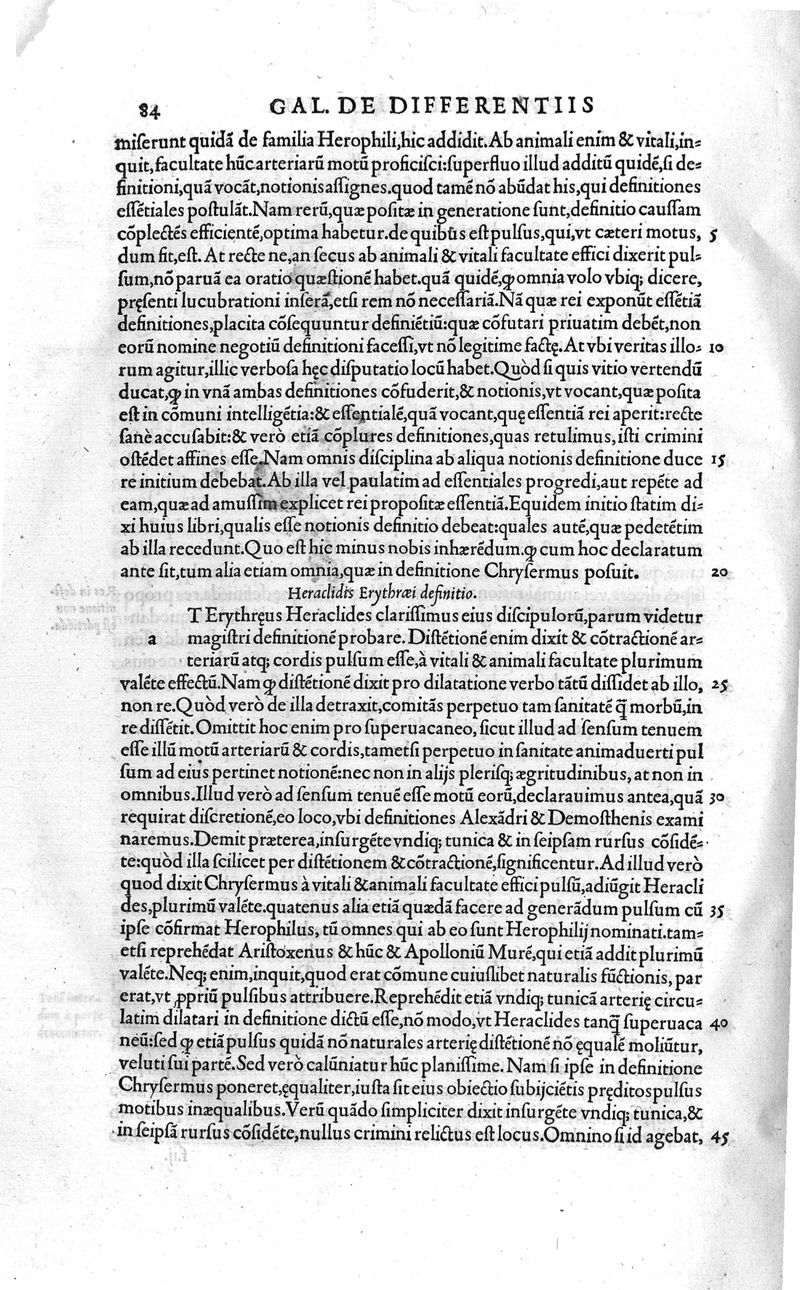 84 GAL. DE DIFFERENTIIS
miſerunt quidã de familia Herophili,hic addidit.Ab animali enim & vitali,in=
quit,facultate hũc arteriarũ motũ proficiſci:ſuperfluo illud additũ quidẽ,ſi de=
finitioni,quã vocãt,notionis aſſignes.quod tamẽ nõ abũdat his,qui definitiones
eſſẽtiales poſtulãt.Nam rerũ,quæ poſitæ in generatione ſunt,definitio cauſſam
cõplectẽs efficientẽ,optima habetur.de quibus eſt pulſus,qui,vt cæteri motus, 5
dum fit,eſt. At recte ne,an ſecus ab animali & vitali facultate effici dixerit pul=
ſum,nõ paruã ea oratio quæſtionẽ habet.quã quidẽ,ꝙ omnia volo vbiq; dicere,
pręſenti lucubrationi inſerã,etſi rem nõ neceſſariã.Nã quæ rei exponũt eſſẽtiã
definitiones,placita cõſequuntur definiẽtiũ:quæ cõfutari priuatim debẽt,non
eorũ nomine negotiũ definitioni faceſſi,vt nõ legitime factę.At vbi veritas illo= 10
rum agitur,illic verboſa hęc diſputatio locũ habet.Quòd ſi quis vitio vertendũ
ducat,ꝙ in vnã ambas definitiones cõfuderit,& notionis,vt vocant,quæ poſita
eſt in cõmuni intelligẽtia:& eſſentialẽ,quã vocant,quę eſſentiã rei aperit:recte
ſanè accuſabit:& verò etiã cõplures definitiones,quas retulimus,iſti crimini
oſtẽdet affines eſſe.Nam omnis diſciplina ab aliqua notionis definitione duce 15
re initium debebat.Ab illa vel paulatim ad eſſentiales progredi,aut repẽte ad
eam,quæ ad amuſſim explicet rei propoſitæ eſſentiã.Equidem initio ſtatim di=
xi huius libri,qualis eſſe notionis definitio debeat:quales autẽ,quæ pedetẽtim
ab illa recedunt.Quo eſt hic minus nobis inhærẽdum.ꝙ cum hoc declaratum
ante ſit,tum alia etiam omnia,quæ in definitione Chryſermus poſuit. 20
Heraclidis Erythræi definitio.
T Erythręus Heraclides clariſſimus eius diſcipulorũ,parum videtur
a magiſtri definitionẽ probare. Diſtẽtionẽ enim dixit & cõtractionẽ ar=
teriarũ atq; cordis pulſum eſſe,à vitali & animali facultate plurimum
valẽte effectũ.Nam ꝙ diſtẽtionẽ dixit pro dilatatione verbo tãtũ diſſidet ab illo, 25
non re.Quòd verò de illa detraxit,comitãs perpetuo tam ſanitatẽ q̃ morbũ,in
re diſſẽtit.Omittit hoc enim pro ſuperuacaneo,ſicut illud ad ſenſum tenuem
eſſe illũ motũ arteriarũ & cordis,tametſi perpetuo in ſanitate animaduerti pul
ſum ad eius pertinet notionẽ:nec non in alijs pleriſq; ægritudinibus, at non in
omnibus.Illud verò ad ſenſum tenuẽ eſſe motũ eorũ,declarauimus antea,quã 30
requirat diſcretionẽ,eo loco,vbi definitiones Alexãdri & Demoſthenis exami
naremus.Demit præterea,inſurgẽte vndiq; tunica & in ſeipſam rurſus cõſidẽ=
te:quòd illa ſcilicet per diſtẽtionem & cõtractionẽ,ſignificentur.Ad illud verò
quod dixit Chryſermus à vitali & animali facultate effici pulſũ,adiũgit Heracli
des,plurimũ valẽte.quatenus alia etiã quædã facere ad generãdum pulſum cũ 35
ipſe cõfirmat Herophilus, tũ omnes qui ab eo ſunt Herophilij nominati.tam=
etſi reprehẽdat Ariſtoxenus & hũc & Apolloniũ Murẽ,qui etiã addit plurimũ
valẽte.Neq; enim,inquit,quod erat cõmune cuiuſlibet naturalis fũctionis, par
erat,vt ꝓpriũ pulſibus attribuere.Reprehẽdit etiã vndiq; tunicã arterię circu=
latim dilatari in definitione dictũ eſſe,nõ modo,vt Heraclides tanq̃ ſuperuaca 40
neũ:ſed ꝙ etiã pulſus quidã nõ naturales arterię diſtẽtionẽ nõ ęqualẽ moliũtur,
veluti ſui partẽ.Sed verò calũniatur hũc planiſſime. Nam ſi ipſe in definitione
Chryſermus poneret,ęqualiter,iuſta ſit eius obiectio ſubijciẽtis pręditos pulſus
motibus inæqualibus.Verũ quãdo ſimpliciter dixit inſurgẽte vndiq; tunica,&
in ſeipſã rurſus cõſidẽte,nullus crimini relictus eſt locus.Omnino ſi id agebat, 45